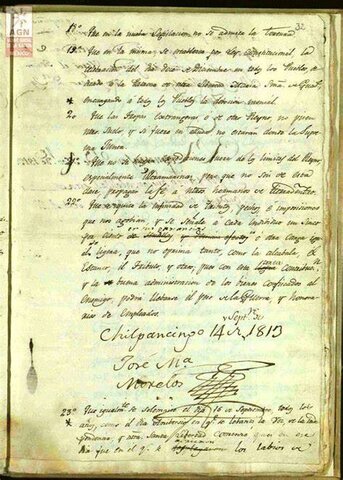 AGN
32
18º Que en la nueva Legislacion no se admita la tortura
19º Que en la misma se establezca por Ley Constitucional la
celebracion del dia doce de Diciembre en todos los Pueblos, de
dicado a la Patrona de nuestra Libertad Maria Sma. de Guad.
* encargando a todos los Pueblos la devocion mensual.
20 Que las tropas extrangeras o de otro Reyno, no pisen
nuestro Suelo, y si fuere en ayuda no estaran donde la Supre
ma Junta.
Que no se hagan expediciones fuera de los limites del Reyno,
especialmente Ultramarinas, pero que no son de esta
clase propagar la fe a nuestros hermanos de tierradentro.
22º Que se quite la infinidad de tributos, pechos, e imposiciones
que nos agobian, y se señale a cada individuo un cinco
por ciento en sus ganancias, u otra carga igual
ligera, que no oprima tanto, como la alcabala, el
Estanco, el Tributo, y otros, pues con esta
y la buena administracion de los bienes confiscados al
Enemigo, podrá llevarse el peso de la Guerra, y honora-
rios de Empleados.
Chilpancingo 14 de Septre. de 1813
José Ma.
Morelos
23º Que igualmte. se solemnice el dia 16 de Septiembre todos los
* años, como el dia Aniversario en que se levanto la Voz de la Inde-
pendencia, y nuestra Santa Libertad Comenzo, pues en ese
dia fue en el q. se los labios de